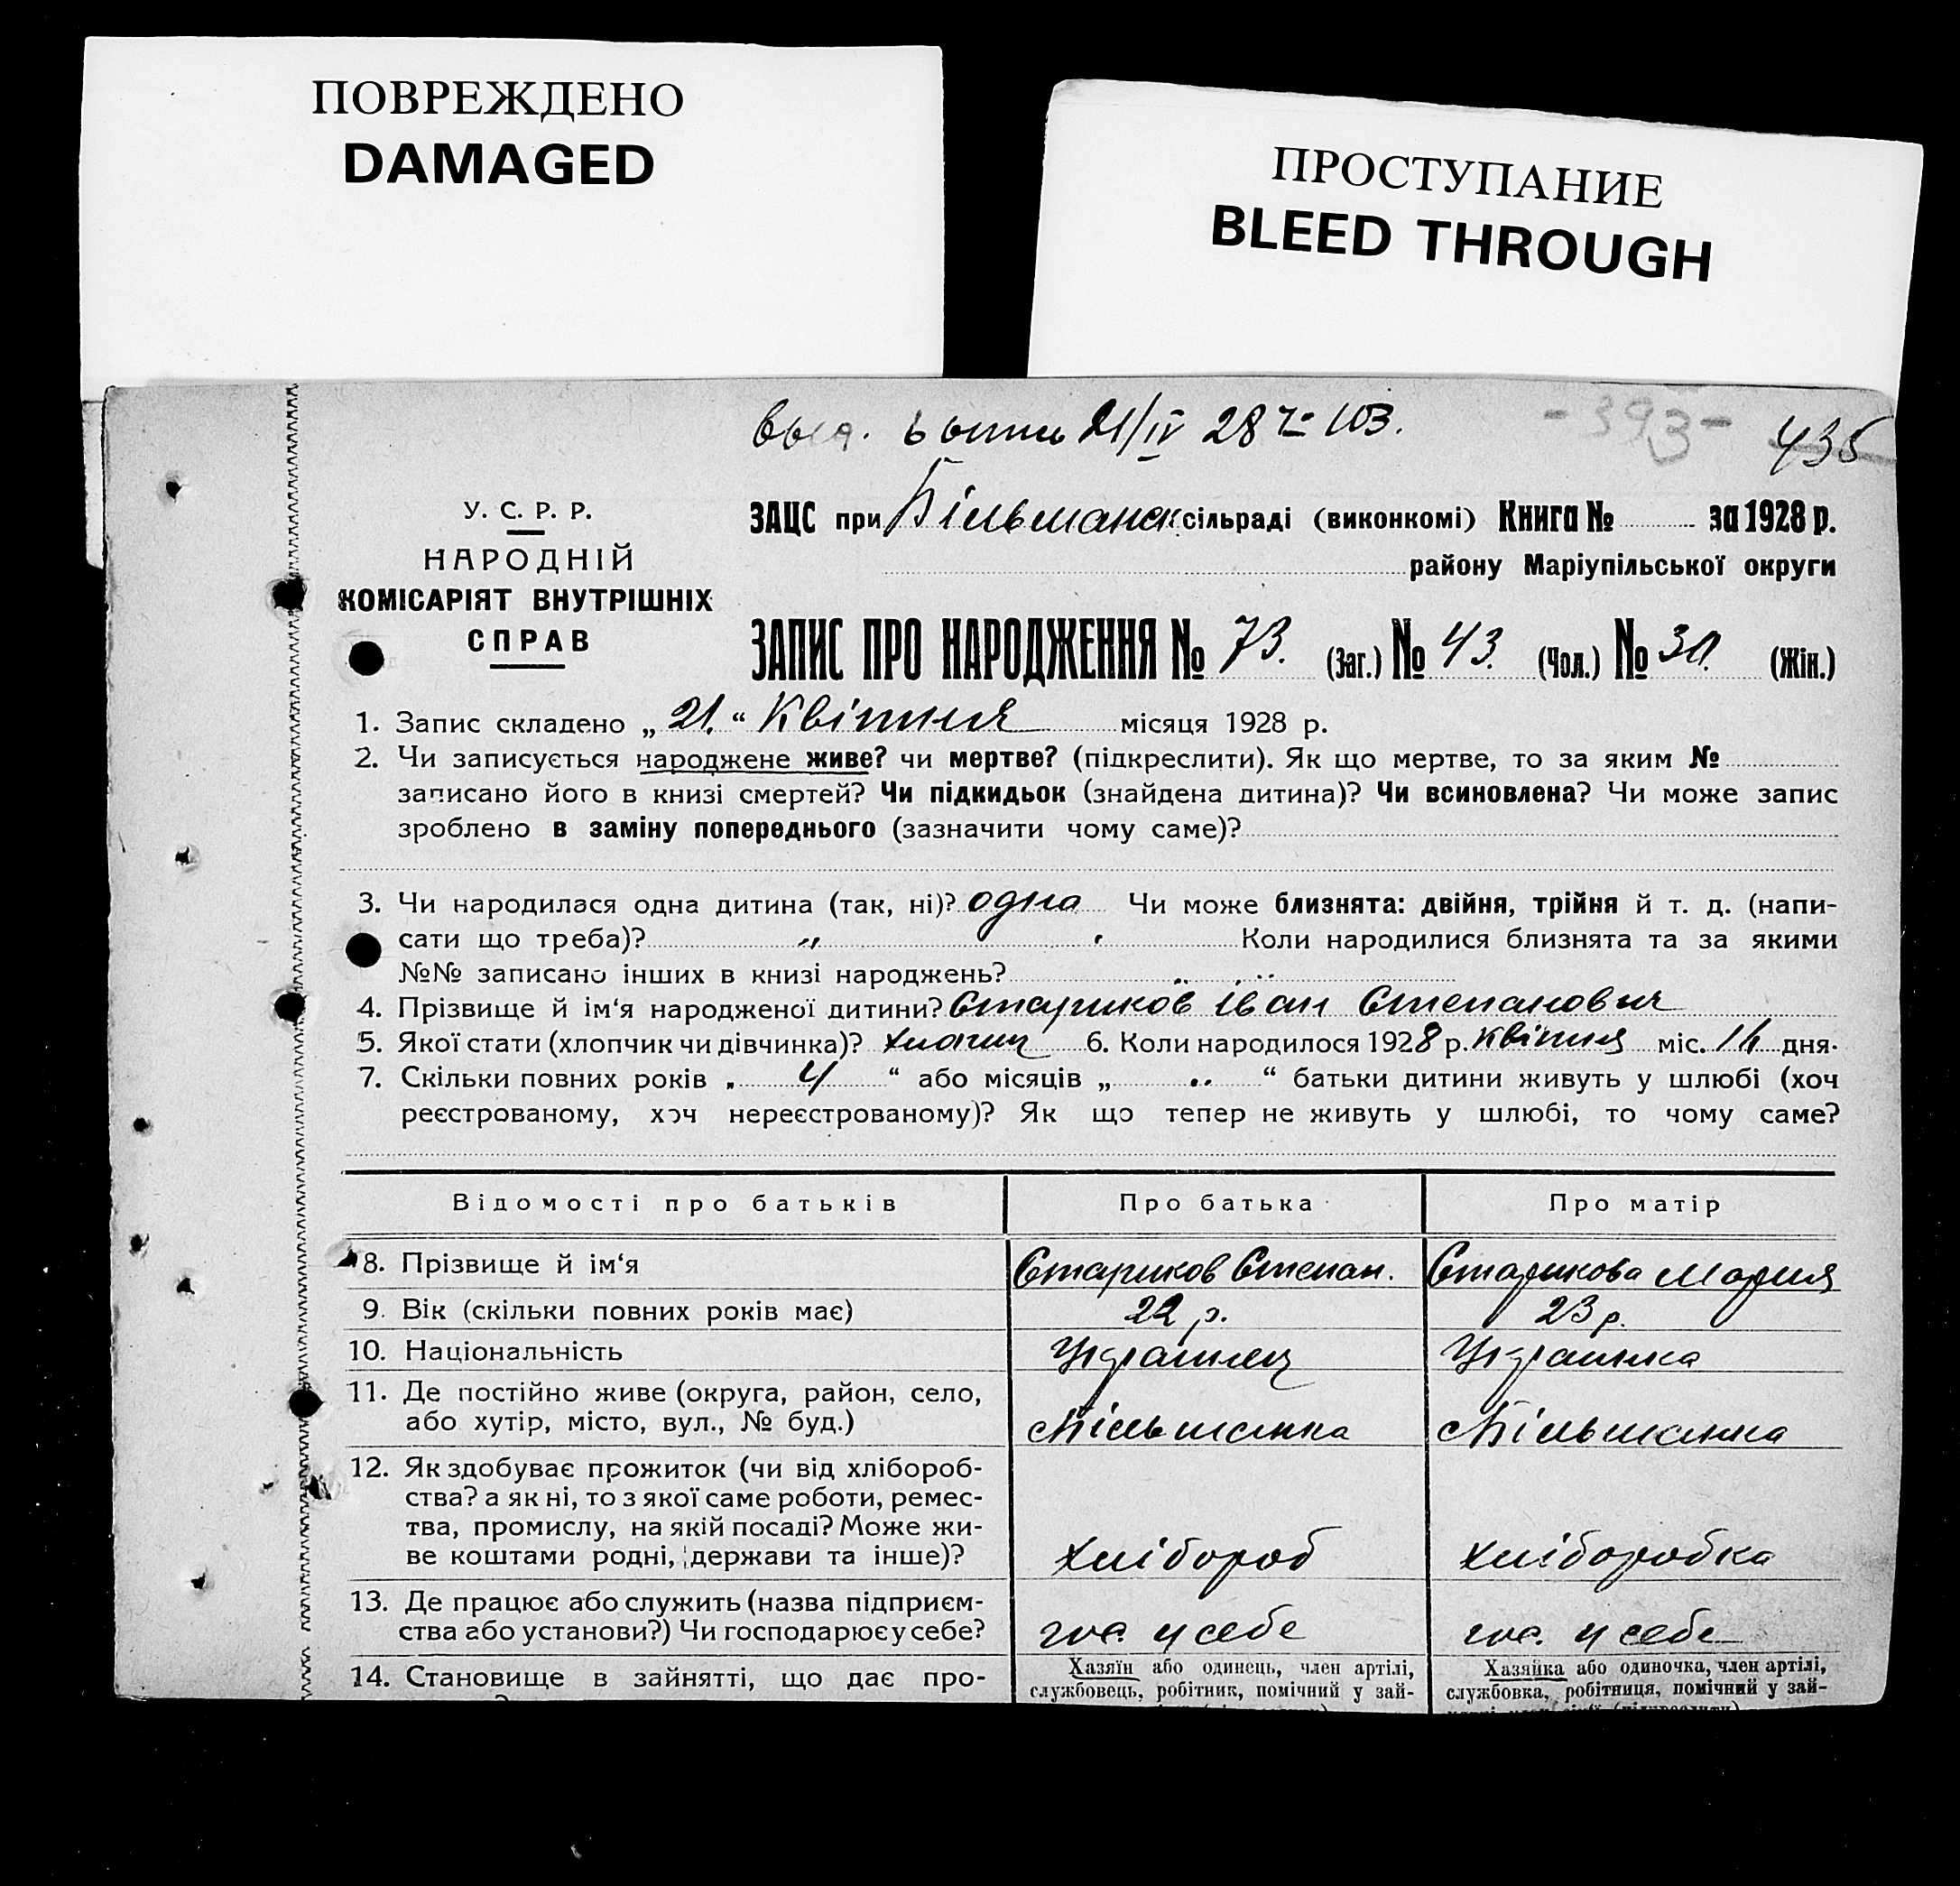 ПОВРЕЖДЕНО
DAMAGED
ПРОСТУПАНИЕ
BLEED THROUGH
21/IV 28 103.
-393- 435
У. С. Р. Р.
НАРОДНІЙ
КОМІСАРІЯТ ВНУТРІШНІХ
СПРАВ
ЗАЦС при Більманск сільраді (виконкомі) Книга № за 1928 р.
району Маріупільської округи
ЗАПИС ПРО НАРОДЖЕННЯ № 73. (Заг.) № 43. (Чол.) № 30. (Жін.)
1. Запис складено „ 21. “ Квітня місяця 1928 р.
2. Чи записується народжене живе? чи мертве? (підкреслити). Як що мертве, то за яким №
записано його в книзі смертей? Чи підкидьок (знайдена дитина)? Чи всиновлена? Чи може запис
зроблено в заміну попереднього (зазначити чому саме)?
3. Чи народилася одна дитина (так, ні)? одна Чи може близнята: двійня, трійня й т. д. (напи-
сати що треба)? „ Коли народилися близнята та за якими
№№ записано інших в книзі народжень? „
4. Прізвище й ім‘я народженої дитини? Стариков Іван Степанович
5. Якої стати (хлопчик чи дівчинка)? хлопчик 6. Коли народилося 1928 р. Квітня міс. дня.
7. Скільки повних років „ 4 “ або місяців „ “ батьки дитини живуть у шлюбі (хоч
реєстрованому, хоч нереєстрованому)? Як що тепер не живуть у шлюбі, то чому саме?
Відомості про батьків Про батька Про матір
8. Прізвище й ім‘я Стариков Степан. Старикова Мария
9. Вік (скільки повних років має) 22 р. 23 р.
10. Національність Украинец Украинка
11. Де постійно живе (округа, район, село,
або хутір, місто, вул., № буд.) Більманка Більманка
12. Як здобуває прожиток (чи від хлібороб-
ства? а як ні, то з якої саме роботи, ремес-
тва, промислу, на якій посаді? Може жи-
ве коштами родні, держави та інше)? хлібороб хліборобка
13. Де працює або служить (назва підприєм-
ства або установи?) Чи господарює у себе? гос. у себе гос. у себе
14. Становище в зайнятті, що дає про-
Хазяїн або одинець, член артілі,
службовець, робітник, помічний у зай-
Хазяйка або одиночка, член артілі,
службовка, робітниця, помічний у зай-